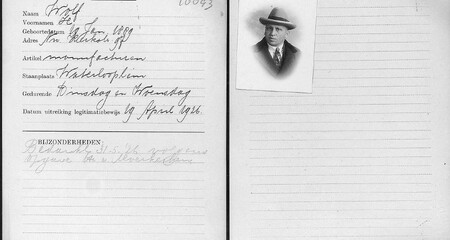 10093
Naam Wolf
Voornamen H.
Geboortedatum 19 Jan. 1889
Adres Nw. Kerkstr.
Artikel manufacturen
Staanplaats Waterlooplein
Gedurende Dinsdag en Woensdag
Datum uitreiking legitimatiebewijs 19 April 1926.
BIJZONDERHEDEN:
Bedankt 31.5.'26